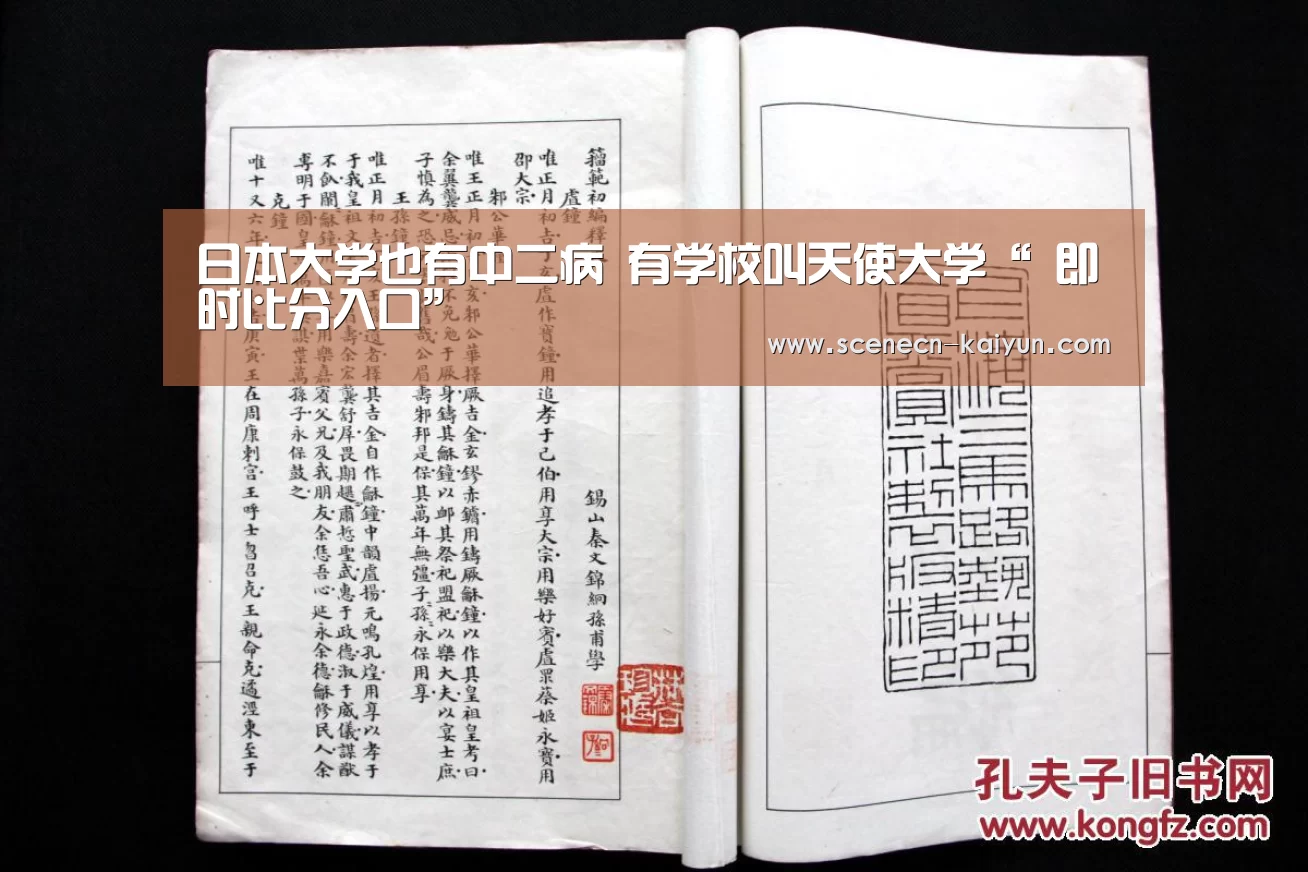 日本大学也有中二病 有学校叫天使大学“ 即
时比分入口”
www.scenecn-kaiyun.com
籀範初編釋
盧鐘
錫山秦文錦絅孫甫學
唯正月初吉丁亥虘作寶鐘用追孝于己伯用享大宗用樂好賓虘眔蔡姬永寶用
邵大宗
邾公華
唯王正月初吉亥邾公華擇厥吉金玄鏐赤鏞用鑄厥龢鐘以作其皇祖皇考曰
余翼龔威忌不于厥身鑄其龢鐘以卹其祭祀盟祀以樂大夫以宴士庶
子慎為之舊哉公眉壽邾邦是保其萬年無疆子孫永保用享
王孫鐘
唯正月初吉王遺者擇其吉金自作龢鐘中韻虘揚元鳴孔煌用享以孝于
于我皇祖文壽余宏龔舒屖畏期趩肅悊聖武惠于政德淑于威儀謀猷
不飤闌龢鐘用樂嘉賓父兄及我朋友余恁吾心延永余德龢修民人余
專明于國皇諆葉萬孫子永保鼓之
克鐘
唯十又六年吉庚寅王在周康剌宫王呼士曶召克王親命克遹涇東至于
孔夫子旧书网
www.kongfz.com